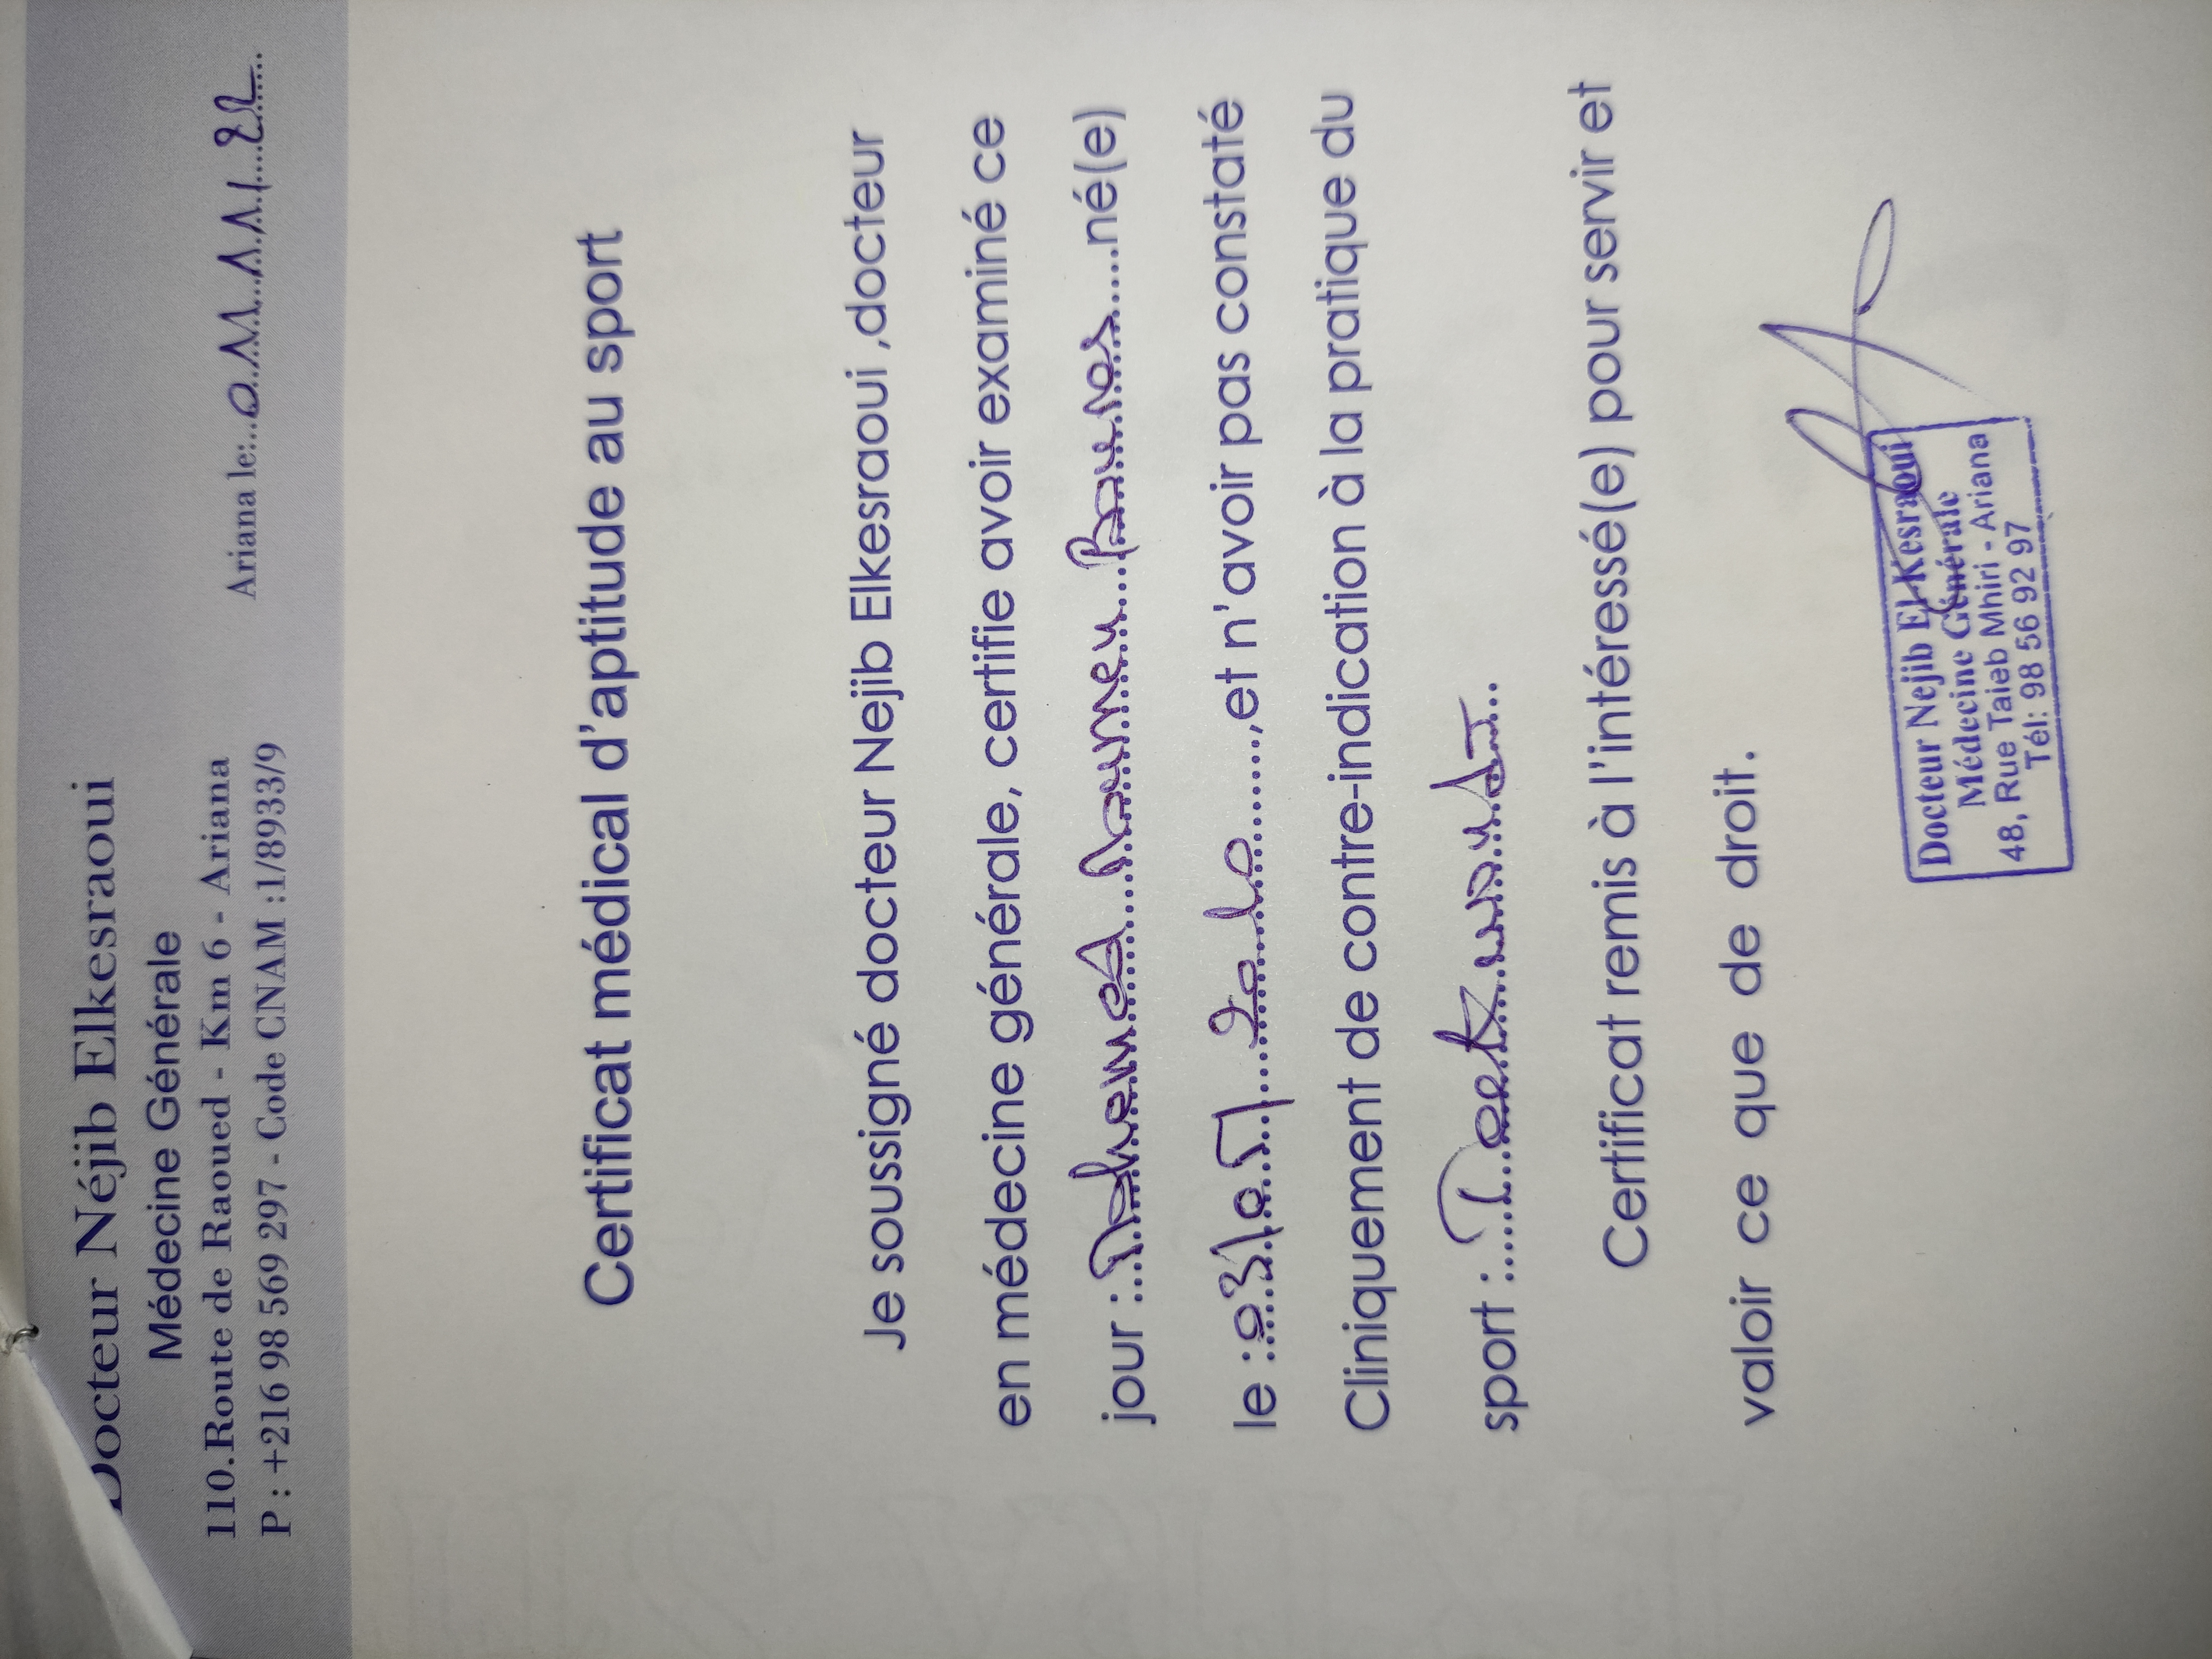 Docteur Néjib Elkesraoui
Médecine Générale
110.Route de Raoued - Km 6 - Ariana
P : +216 98 569 297 - Code CNAM :1/8933/9
Ariana le:
Certificat médical d'aptitude au sport
Je soussigné docteur Nejib Elkesraoui ,docteur
en médecine générale, certifie avoir examiné ce
jour : né(e)
le : ,et n'avoir pas constaté
Cliniquement de contre-indication à la pratique du
sport : Taekwondo
Certificat remis à l'intéressé(e) pour servir et
valoir ce que de droit.
Docteur Nejib ElKesraoui
Médecine Générale
48, Rue Taieb Mhiri - Ariana
Tél: 98 56 92 97